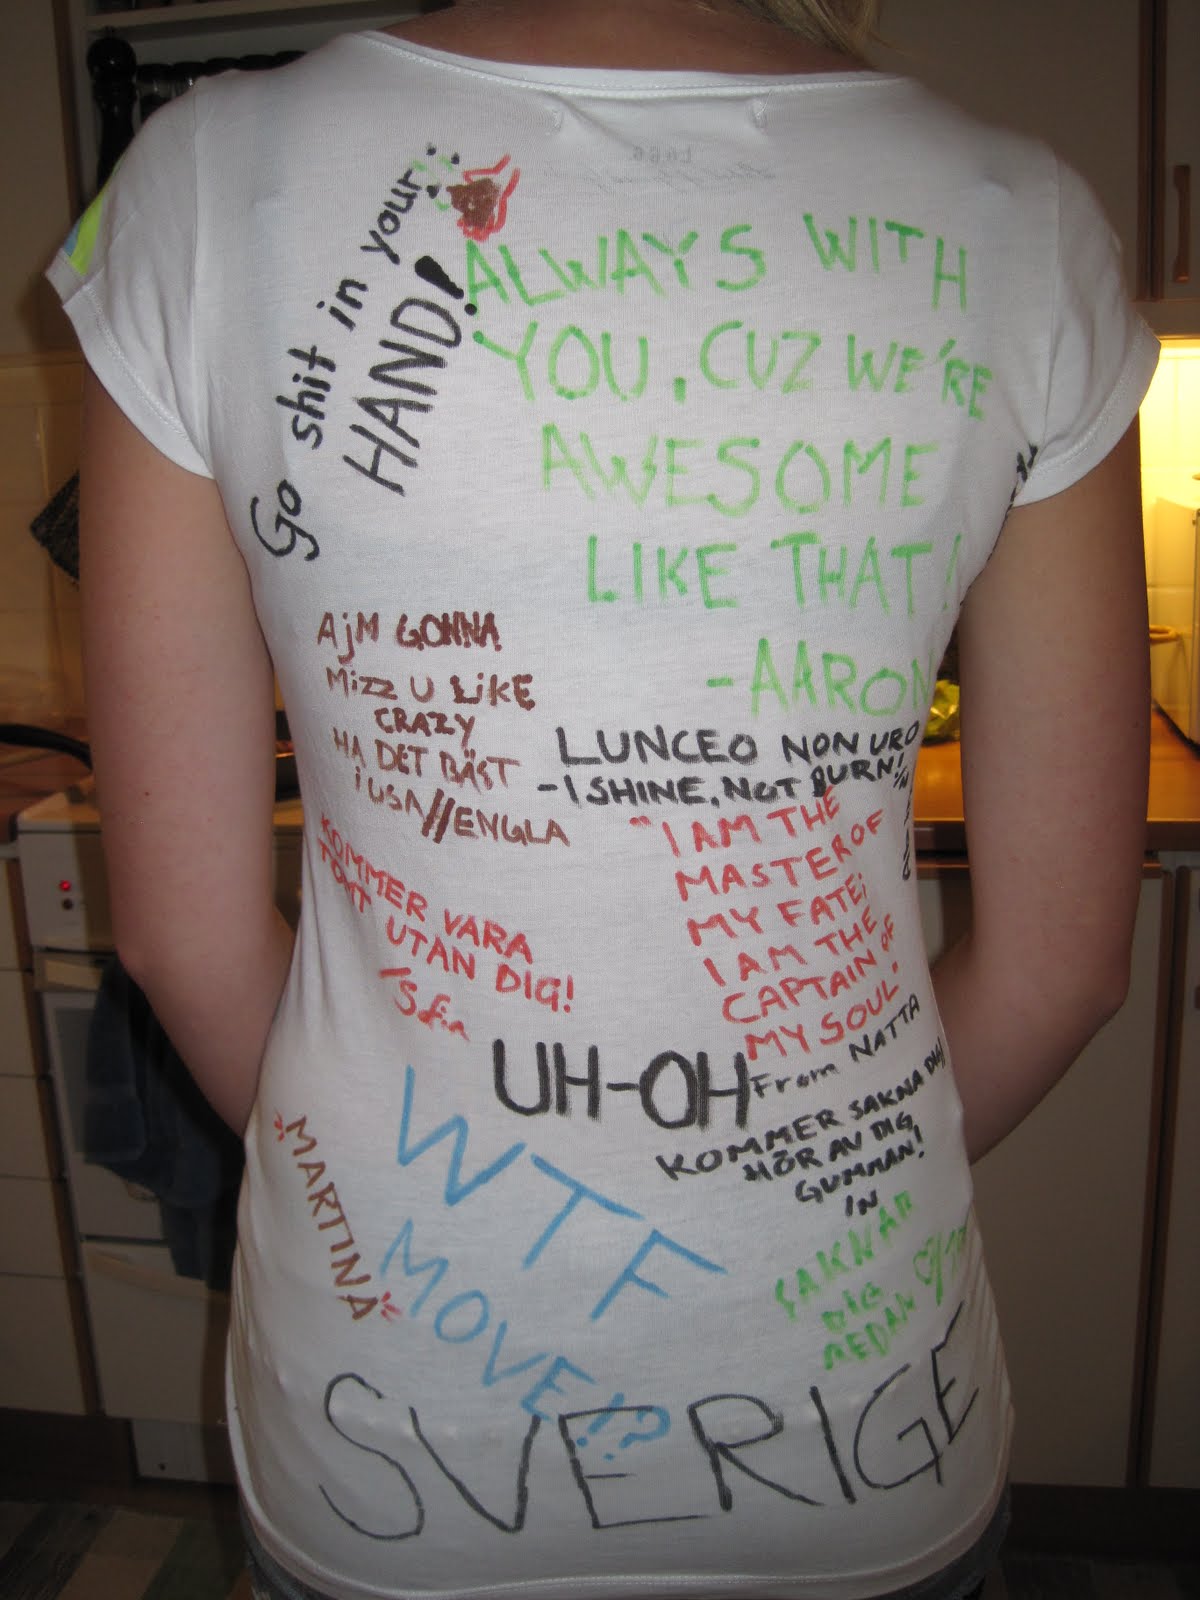 Go shit in your
HAND!
ALWAYS WITH
YOU, CUZ WE'RE
AWESOME
LIKE THAT!
-AARON
AjM GONNA
Mizz U LiKE
CRAZY
HA DET BÄST
i USA//ENGLA
LUNCEO NON URO
-I SHINE, NOT BURN!
KOMMER VARA
TOMT UTAN DIG!
"I AM THE
MASTER OF
MY FATE;
I AM THE
CAPTAIN OF
MY SOUL"
From NATTA
UH-OH
KOMMER SAKNA DIG!
HÖR AV DIG,
GUMMAN!
MARTINA
WTF
MOVE!?
SAKNAR
DIG
REDAN
SVERIGE